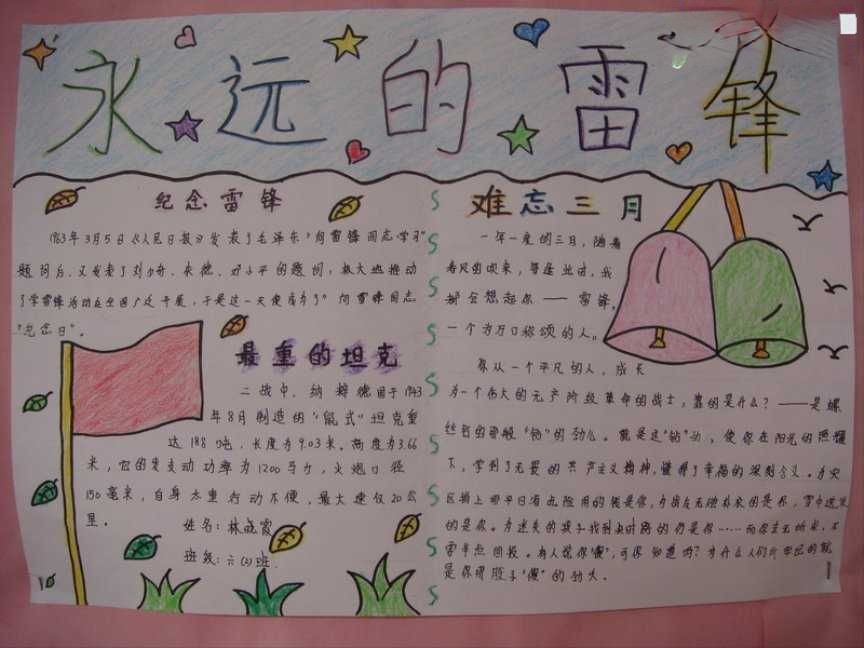 永远的雷锋
纪念雷锋
1963年3月5日《人民日报》发表了毛泽东"向雷锋同志学习"
题词后,又发表了刘少奇、朱德、邓小平的题词,极大地推动
了学雷锋活动在全国广泛开展,于是这一天便成为了"向雷锋同志
"纪念日"。
最重的坦克
二战中,纳粹德国于1943
年8月制造的"鼠式"坦克重
达188吨,长度为9.03米。高度为3.66
米,它的发动功率为1200马力,火炮口径
150毫米,自身太重行动不便,最大速仅20公
里。
姓名:林晓霞
班级:六(2)班
难忘三月
一年一度的三月,随着
春风的吹来,每逢此时,我
都会想起你——雷锋,
一个为万口称颂的人。
你从一个平凡的人,成长
为一个伟大的无产阶级革命的战士,靠的是什么?——是螺
丝钉的那般"钻"的劲儿。就是这"钻"劲,使你在阳光的照耀
下,学到了无畏的共产主义精神,懂得了幸福的深刻含义。为灾
区捐上哪平日省点俭用的钱是你,为战友无 的是你,雪中送炭
的是你。为迷失的孩子找到 的仍是你……而你去无所求,不
需半点回报。有人说你"傻",可你知道吗?为什么人们
是你那股子"傻"的劲头。